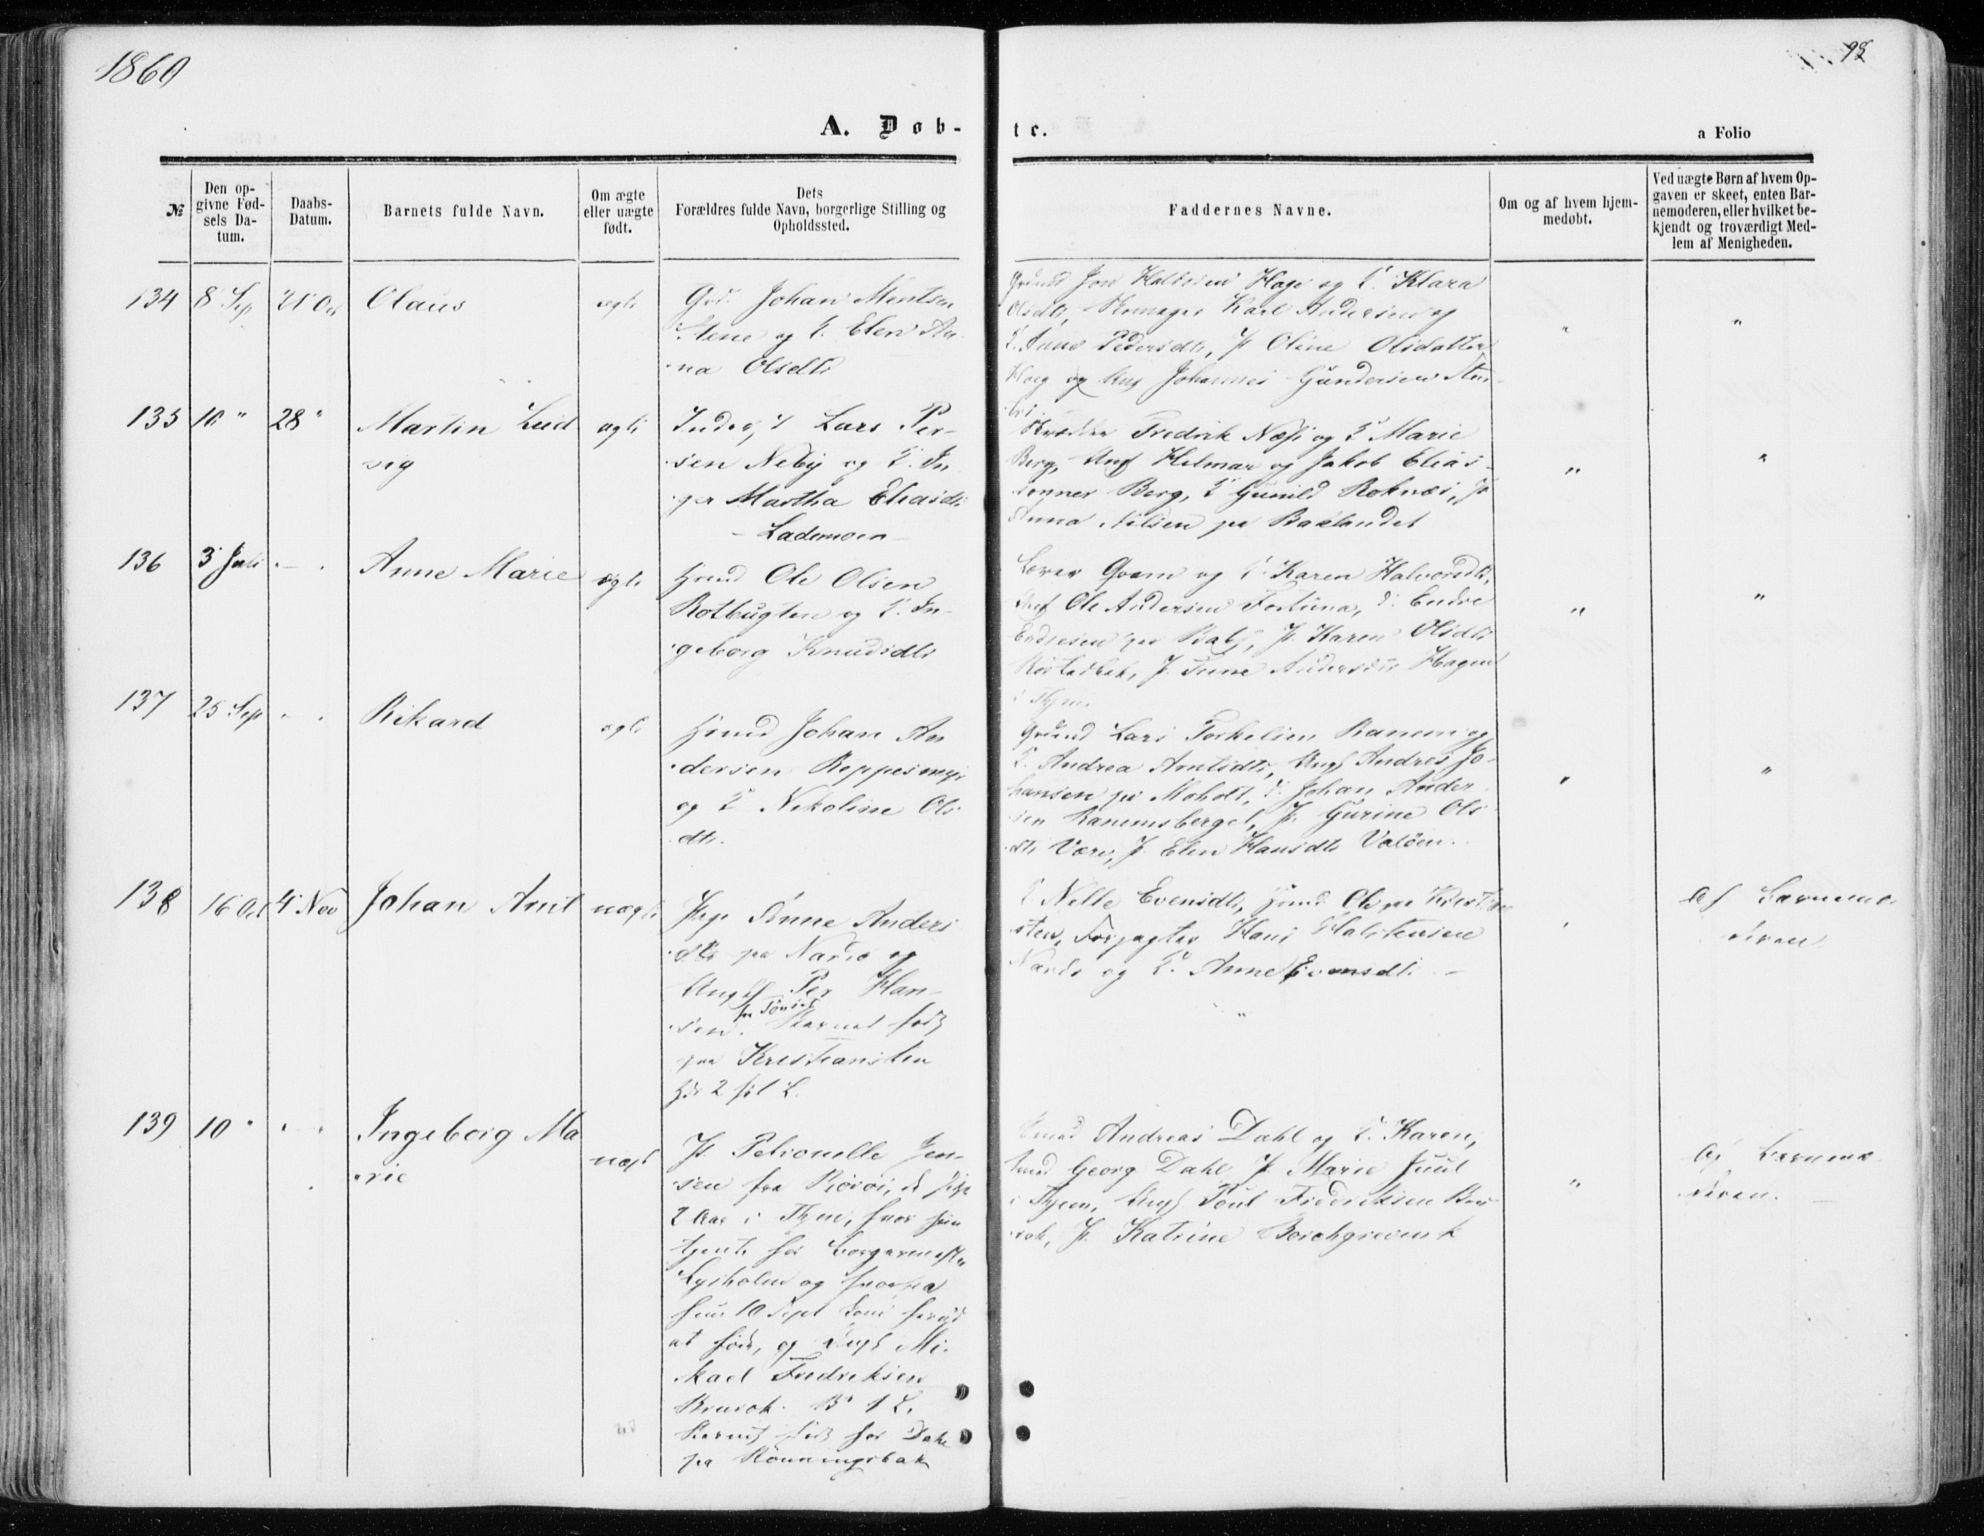 1860
98
A. Døb-
te.
a Folio
№
Den op-
givne Fød-
sels Da-
tum.
Daabs-
Datum.
Barnets fulde Navn.
Om ægte
eller uægte
født.
Dets
Forældres fulde Navn, borgerlige Stilling og
Opholdssted.
Faddernes Navne.
Om og af hvem hjem-
medøbt.
Ved uægte Børn af hvem Op-
gaven er skeet, enten Bar-
nemoderen, eller hvilket be-
kjendt og troværdigt Med-
lem af Menigheden.
134 8 Sep 21 Oct Olaus ægte
Johan Mentsen
Stene og K. Elen An-
na Olsdtr
Jon Haldosen Hage og K. Klara
Olsdtr, Skomager Karl Andersen og
K. Anne Pedersdtr, P. Oline Olsdatter
Haeg og Ung. Johannes Gundersen
"
"
135 10 " 28 " Martin Lud
vig
ægte
Inders. Lars Per-
sen Neby og K. In
ger Martha Eliasdtr
- Lademoen -
Skrædder Fredrik Næss og K. Marie
Berg, Ung Hilmar og Jakob Elias-
sønner Berg, K. Gunild Roknæs, P.
Anna Nilsen pa Baklandet
"
"
136 3 Juli - Anne Marie ægte
Hmd Ole Olsen
Rotbugten og K. In-
geborg Knudsdtr
Lærer Gram og K. Karen Halvorsdtr,
Ung Ole Andersen Fortuna, d. Endre
Endresen pa Bakl, P. Karen Olsdtr
P. Anne Andersdtr Hagen
"
"
137 25 Sep - Rikard ægte
Hmd Johan An
dersen Reppesmyr
og K. Nikoline Ols
dtr.
Lars Torkelsen Ranem og
K. Andrea Arntsdtr, Ung. Andres Jo-
hansen pa Moholt, d. Johan Ander
sen Ranemsberget, P. Gurine Ols
dtr Være, P. Elen Hansdtr Valøen.
"
"
138 16 Oct 4 Nov Johan Arnt uægte
Pige Anne Anders
dtr pa Nardo og
Ungk Per Han-
sen. Barnet født
paa Kristiansten
2 L.
K. Nelle Evensdtr, Hmd Ole pa Kristian
sten, Forpagter Hans Halstensen
Nardo og K. Anne Evensdtr -
"
Af Barnemo-
deren
139 10 " - Ingeborg Ma
rie
uægt
P. Petronelle Jen-
sen fra Røros, d.
2 Aar i Thjem, hvor hun
tjente hos Borgermester
Lysholm og hvorfra
hun 10 Sept
at føde, og Ungk Mi-
kael Fredriksen
Brurok. B 1 L.
Barnet født hos Dahl
pa Rønningsbak
Andreas Dahl og K. Karen,
Georg Dahl, P. Marie Juul
i Thjem, Ungk Poul Fredriksen Bru-
rok, P. Katrine Borchgrevink
"
Af Barnemo-
deren.